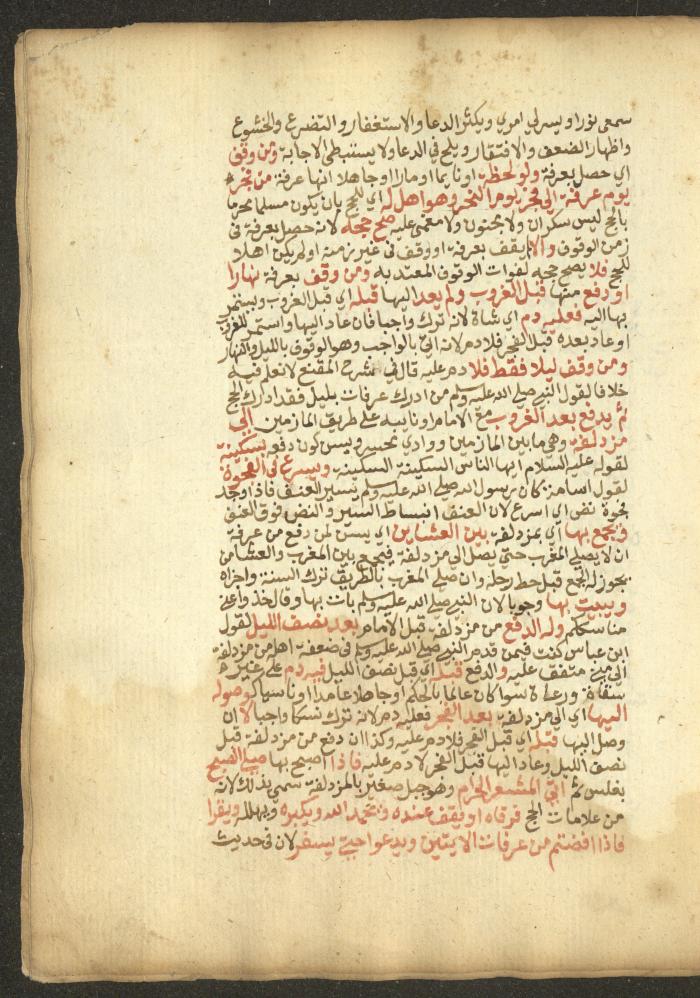 سمعي نورا ويسر لي امري ويكثر الدعا والاستغفار والتضرع والخشوع
واظهار الضعف والافتقار ويلح في الدعا ولا يستبطي الاجابة ومن وقف
اي حصل بعرفة ولو لحظة او نايما او مارا او جاهلا انها عرفة من فجر
يوم عرفة الي فجر يوم النحر وهو اهل له اي للحج بان يكون مسلما محرما
بالحج ليس سكران ولا مجنون ولا مغمي عليه صح حجه لانه حصل بعرفة في
زمن الوقوف والا يقف بعرفة او وقف في غير زمنه او لم يكن اهلا
للحج فلا يصح حجه لفوات الوقوف المعتد به ومن وقف بعرفة نهارا
او دفع منها قبل الغروب ولم يعد اليها قبله اي قبل الغروب ويستمر
بها اليه فعليه دم اي شاة لانه ترك واجبا فان عاد اليها واستمر للغروب
او عاد بعده قبل الفجر فلا دم لانه اتي بالواجب وهو الوقوف بالليل والنهار
ومن وقف ليلا فقط فلا دم عليه قال في شرح المقنع لا نعلم فيه
خلافا لقول النبي صلي الله عليه وسلم من ادرك عرفات بليل فقد ادرك الحج
ثم يدفع بعد الغروب مع الامام او نايبه علي طريق المازمين الي
مزدلفة وهي ما بين المازمين ووادي محسر ويسن كون دفعه بسكينة
لقوله عليه السلام ايها الناس السكينة السكينة ويسرع في الفجوة
لقول اسامة كان رسول الله صلي الله عليه وسلم يسير العنق فاذا وجد
فجوة نص اي اسرع لان العنق انبساط السير والنص فوق العنق
ويجمع بها اي بمزدلفة بين العشاين اي يسن لمن دفع من عرفة
ان لا يصلي المغرب حتي يصل الي مزدلفة فيجمع بين المغرب والعشا من
يجوز له الجمع قبل حط رحله وان صلي المغرب بالطريق ترك السنة واجزاه
ويبيت بها وجوبا لان النبي صلي الله عليه وسلم بات بها وقال خذوا عني
مناسككم وله الدفع من مزدلفة قبل الامام بعد نصف الليل لقول
ابن عباس كنت فيمن قدم النبي صلي الله عليه وسلم في ضعفة اهله من مزدلفة
الي مني متفق عليه والدفع قبله اي قبل نصف الليل فيه دم علي غير
سقاة ورعاة سوا كان عالما بالحكم او جاهلا عامدا او ناسيا كوصوله
اليها اي الي مزدلفة بعد الفجر فعليه دم لانه ترك نسكا واجبا لا ان
وصل اليها قبله اي قبل الفجر فلا دم عليه وكذا ان دفع من مزدلفة قبل
نصف الليل وعاد اليها قبل الفجر لا دم عليه فاذا اصبح بها صلي الصبح
بغلس ثم اتي المشعر الحرام وهو جبل صغير بالمزدلفة سمي بذلك لانه
من علامات الحج فرقاه او يقف عنده ويحمد الله ويكبره ويهلله ويقرا
فاذا افضتم من عرفات الايتين ويدعوا حتي يسفر لان في حديث